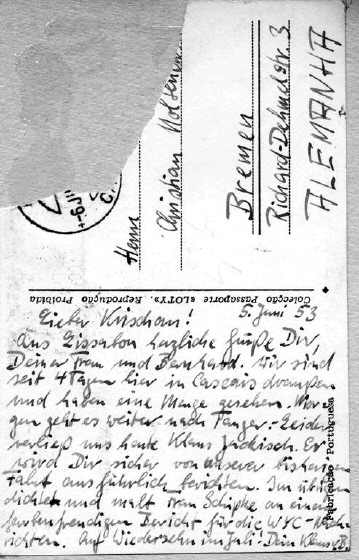 Herrn
Christian
Bremen
Richard-Dehmelstr. 3
ALEMANHA
Colecção Passaporte «LOTY». Reprodução Proibida
Fabricação Portuguesa
5. Juni 53
Lieber Krischan!
Aus Lissabon herzliche Grüße Dir,
Deiner Frau und Bernhard! Wir sind
seit 4 Tagen hier in Cascais draußen
und haben eine Menge gesehen. Mor-
gen geht es weiter nach Tanger. Leider
verließ uns heute Klaus Jackisch. Er
wird Dir sicher von unserer bisherigen
Fahrt ausführlich berichten. Im übrigen
dichtet und malt Frau Schipke an einem
farbenfreudigen Bericht für die WYC-Nach-
richten. Auf Wiedersehn im Juli. Dein Klaus